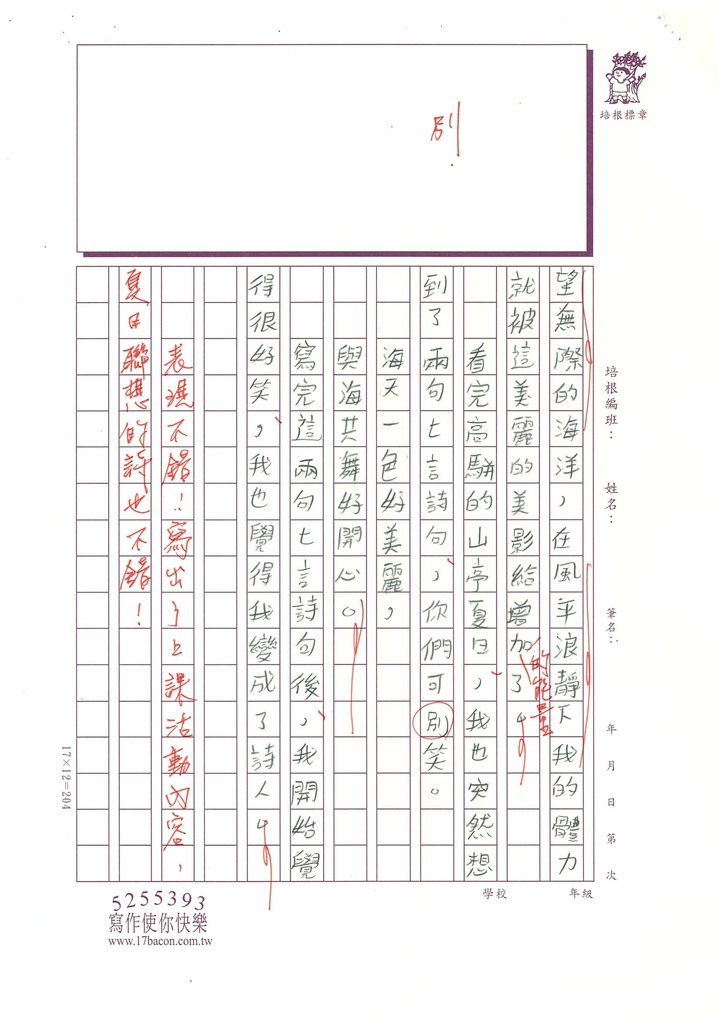 別
培根標章
培根編班：
姓名：
筆名：
年 月 日 第 次
學校
年級
望無際的海洋，在風平浪靜下我的體力
就被這美麗的美影給增加了。
的能量
看完高駢的山亭夏日，我也突然想
到了兩句七言詩句，你們可別笑。
海天一色好美麗，
與海共舞好開心。
寫完這兩句七言詩句後，我開始覺
得很好笑，我也覺得我變成了詩人。
表現不錯！寫出了上課活動內容，
夏日聯想的詩也不錯！
17×12=204
5255393
寫作使你快樂
www.17bacon.com.tw